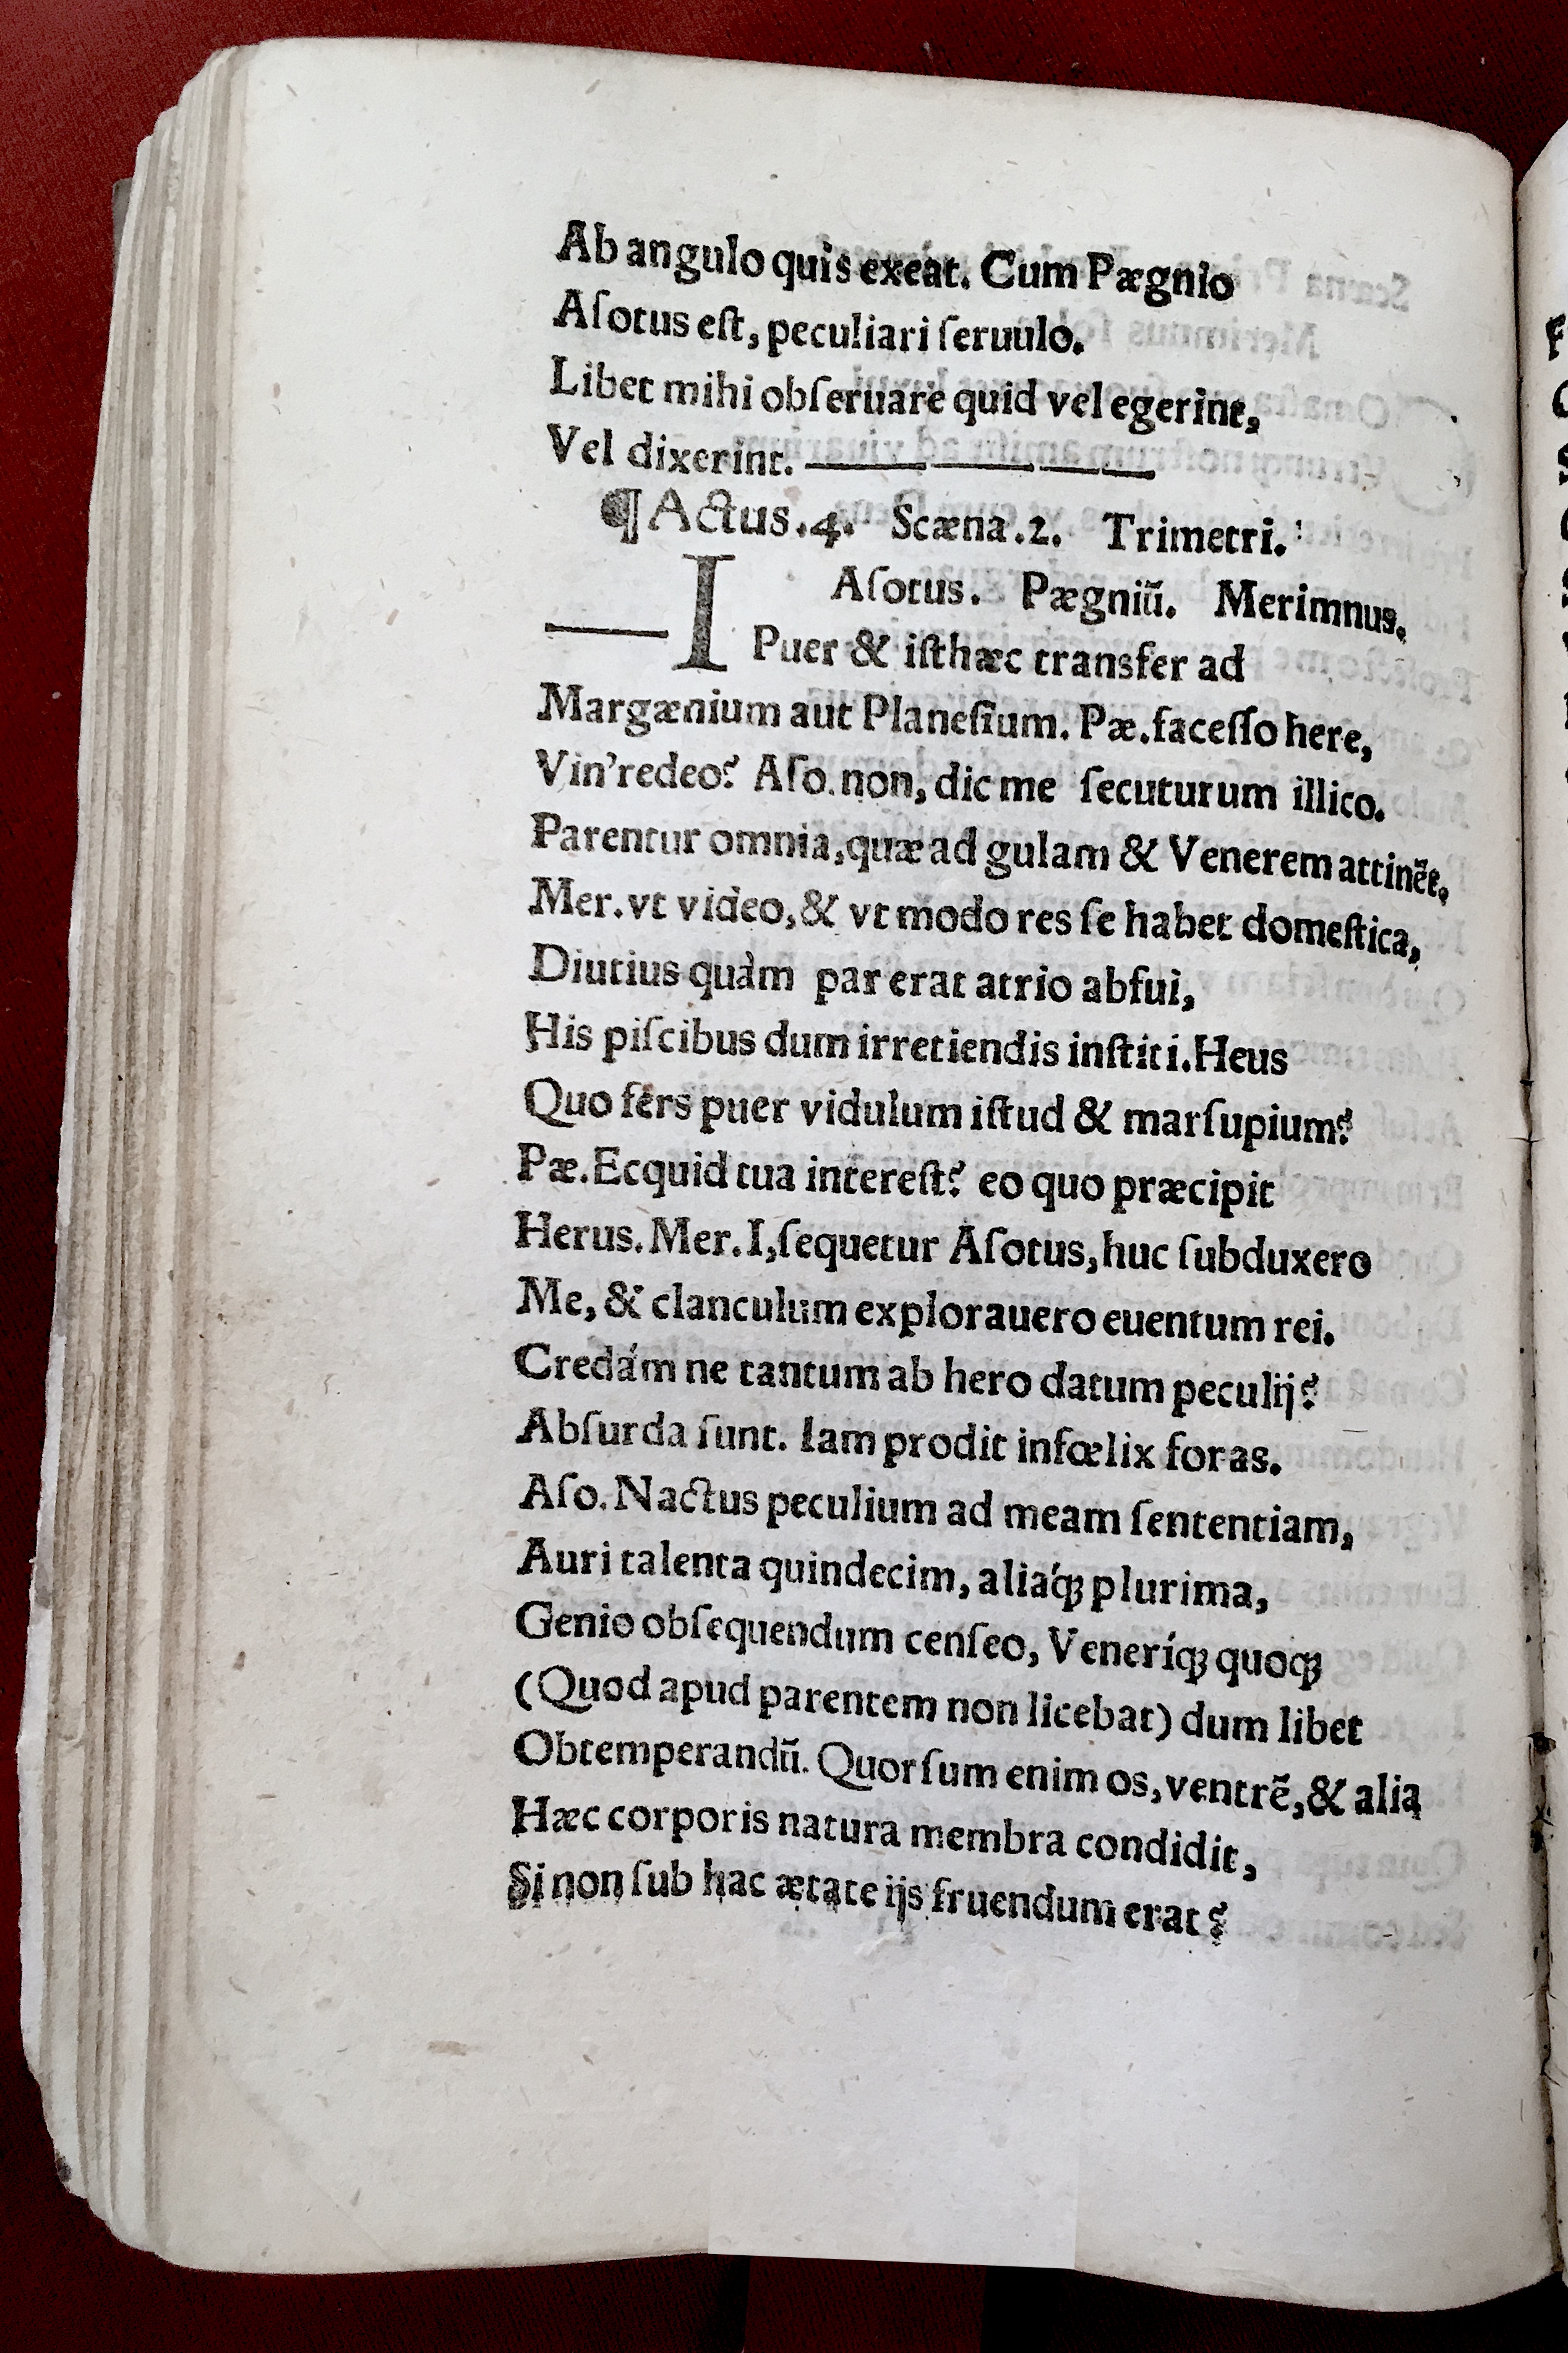 Ab angulo quis exeat. Cum Pægnio
Aſotus eſt, peculiari ſeruulo.
Libet mihi obſeruare quid vel egerint,
Vel dixerint. — — —
¶ Actus .4. Scæna .2. Trimetri.
Aſotus. Pægniū. Merimnus.
— I Puer & iſthæc transfer ad
Margænium aut Planeſium. Pæ. faceſſo here,
Vin' redeo? Aſo. non, dic me ſecuturum illico.
Parentur omnia, quæ ad gulam & Venerem attinēt.
Mer. vt video, & vt modo res ſe habet domeſtica,
Diutius quàm par erat atrio abfui,
His piſcibus dum irretiendis inſtiti. Heus
Quo fers puer vidulum iſtud & marſupium?
Pæ. Ecquid tua intereſt? eo quo præcipit
Herus. Mer. I, ſequetur Aſotus, huc ſubduxero
Me, & clanculum explorauero euentum rei.
Credám ne tantum ab hero datum peculij?
Abſurda ſunt. Iam prodit infœlix foras.
Aſo. Nactus peculium ad meam ſententiam,
Auri talenta quindecim, aliáꝗ plurima,
Genio obſequendum cenſeo, Veneríꝗ quoꝗ
(Quod apud parentem non licebat) dum libet
Obtemperandū. Quorſum enim os, ventrē, & alia
Hæc corporis natura membra condidit,
Si non ſub hac ætate ijs fruendum erat?